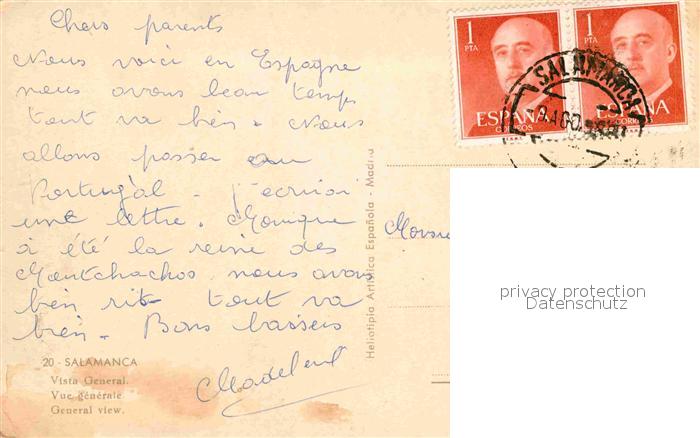 Chers parents
Nous voici en Espagne
nous avons beau temps
tout va bien. Nous
allons passer au
Portugal - j'ecrirai
une lettre. Monique
à été la reine des
Moutchachos nous avons
bien rit tout va
bien. Bons baisers
20 - SALAMANCA
Vista General.
Vue générale
General view.
Heliotipia Artística Española - Madrid
1
PTA
ESPAÑA
CORREOS
1
PTA
ESPAÑA
CORREOS
SALAMANCA
AGO
privacy protection
Datenschutz